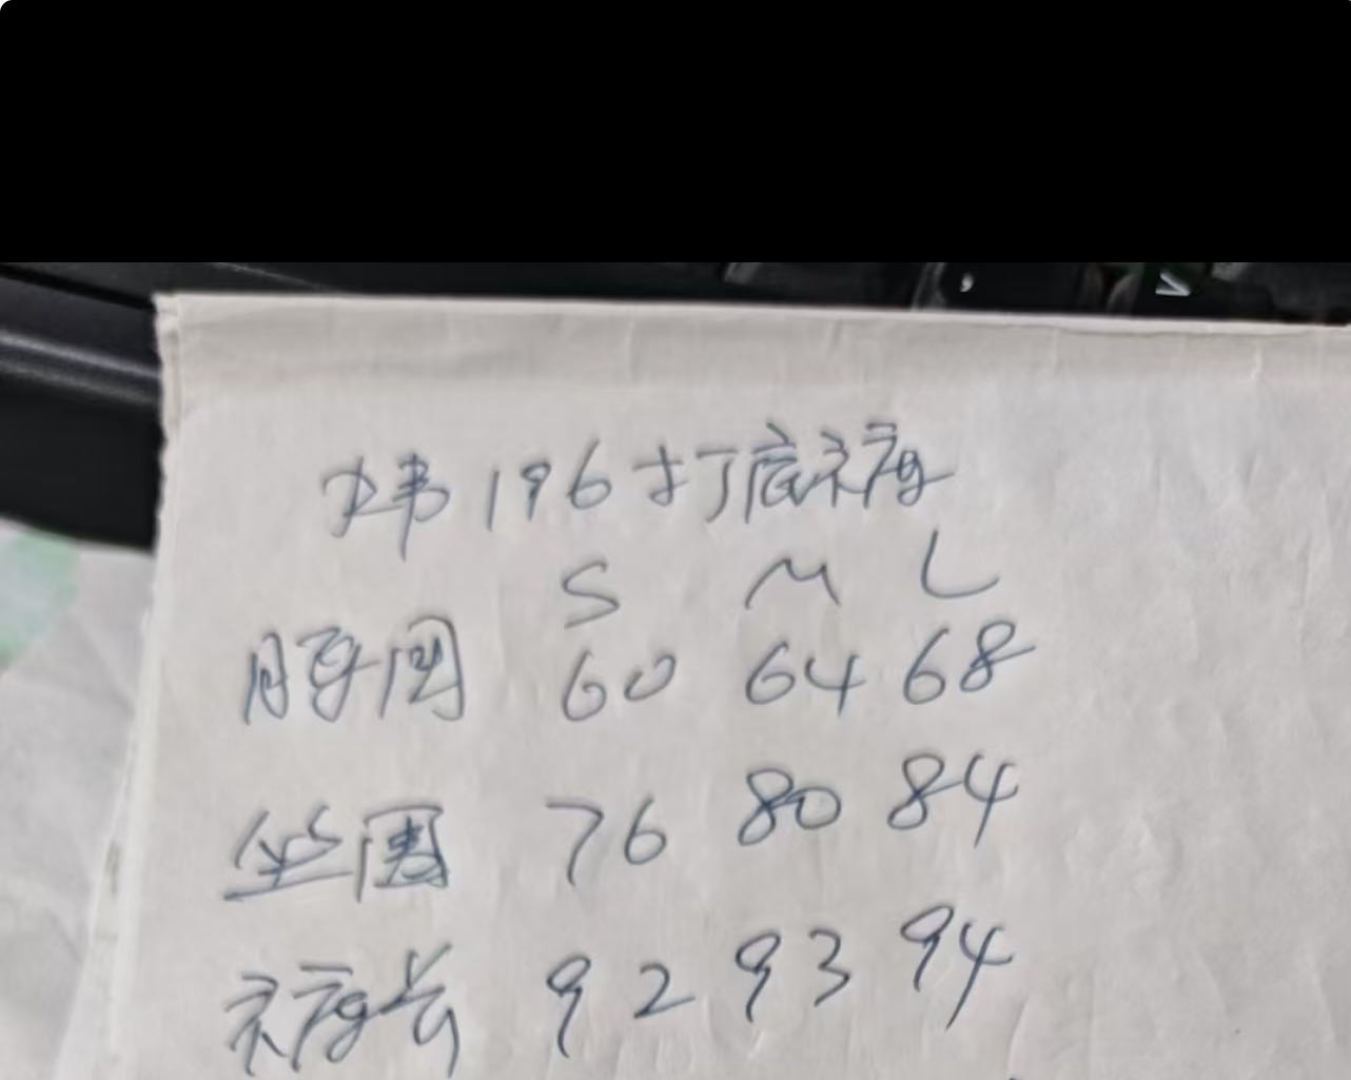 196打底裤
S M L
腰围 60 64 68
坐围 76 80 84
裤长 92 93 94